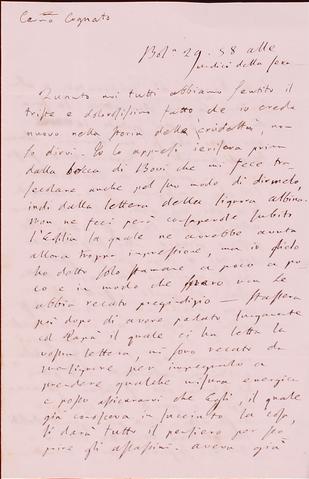 Caro Cognato
Bol.a 29. 88 alle
undici della sera
Quanto noi tutti abbiamo sentito il
triste e dolorosissimo fatto che io credo
nuovo nella storia della crudeltà, non
so dirvi. Io lo appresi iersera prima
dalla bocca di Bovi che mi fece tra
secolare anche pel suo modo di dirmelo,
indi dalla lettera della Signora Albina.
Non ne feci però consapevole subito
l'Esilia la quale ne avrebbe avuta
allora troppa impressione, ma io glielo
ho detto solo stamane a poco a po
co e in modo che non le
abbia recato pregiudizio — Stassera
poi dopo di avere parlato lungamente
col Papà il quale ci ha letta la
vostra lettera, mi sono recato da
per impegnarlo a
prendere qualche misura energica
e posso assicurarvi che Egli, il quale
già conosceva in succinto la cosa,
si darà tutto il pensiero per sco
prire gli assassini. Aveva già